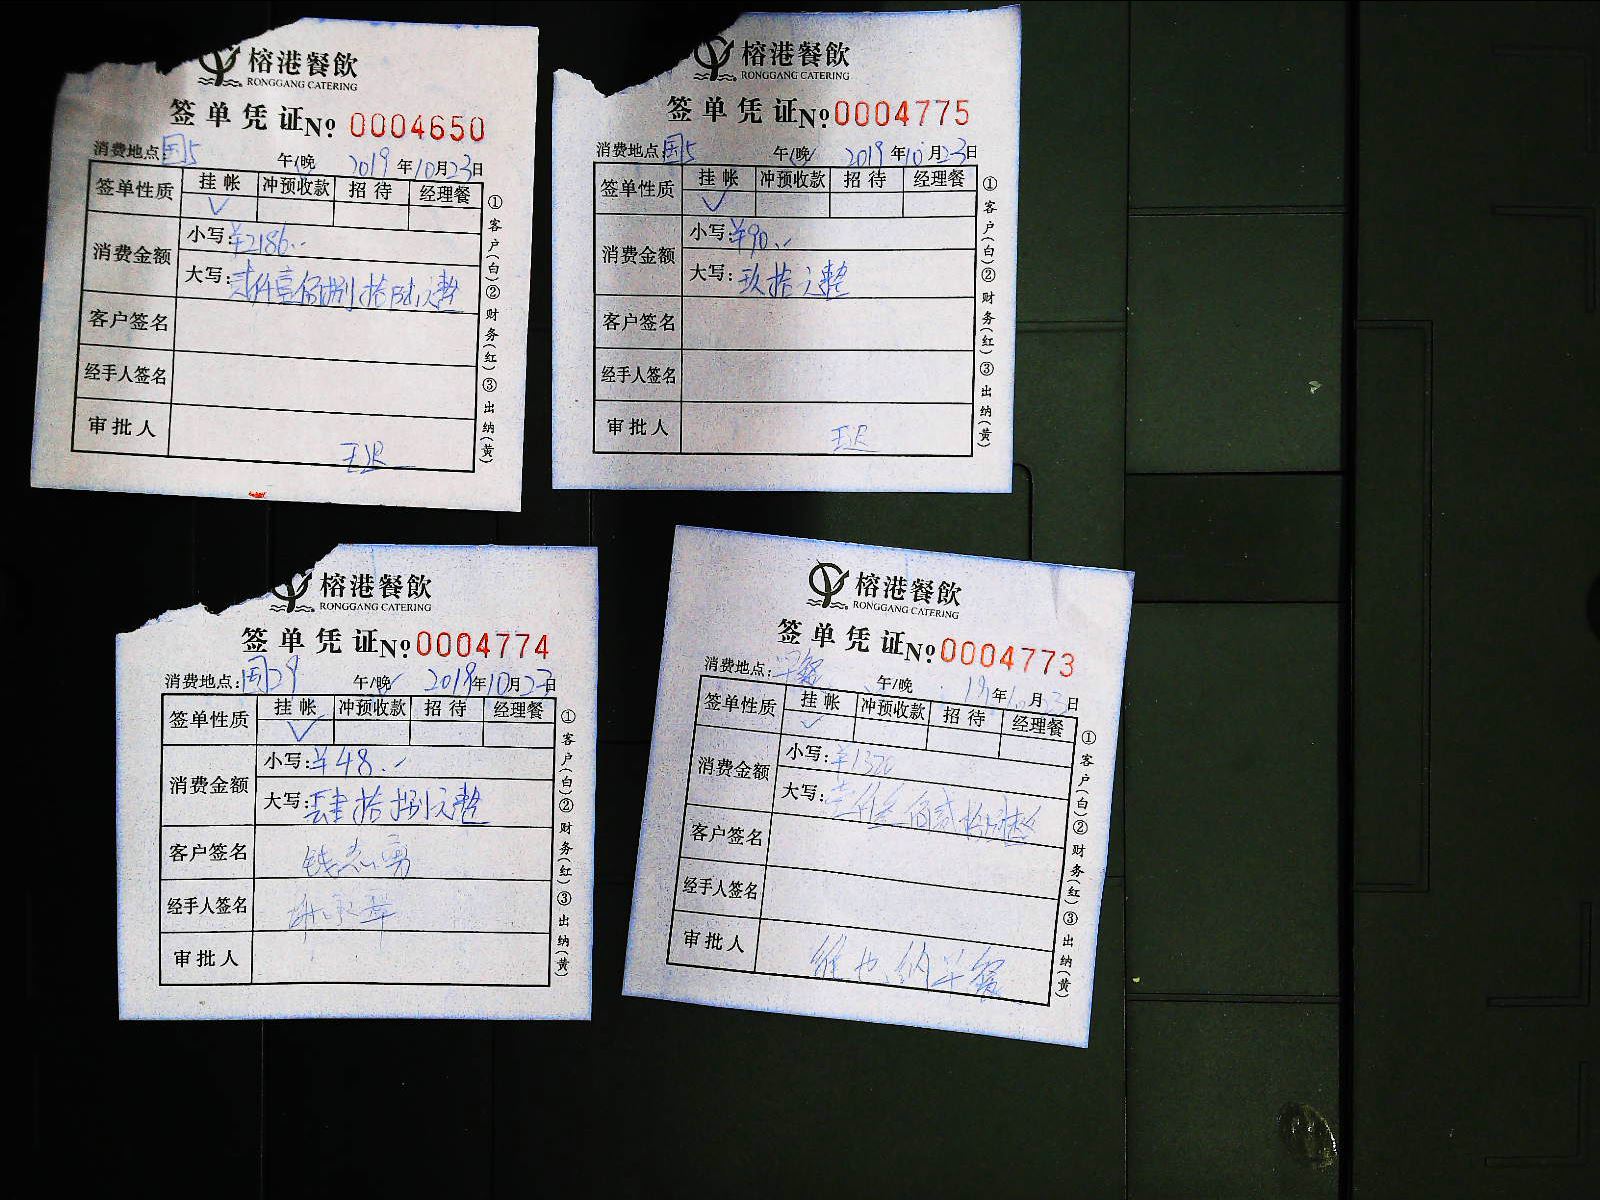 榕港餐飲
RONGGANG CATERING
签单凭证 № 0004650
消费地点:国5 午/晚 2019年10月23日
签单性质 挂帐 冲预收款 招待 经理餐
消费金额 小写:¥2186.-
大写:贰仟壹佰捌拾陆元整
客户签名
经手人签名
审批人
①客户(白)②财务(红)③出纳(黄)
榕港餐飲
RONGGANG CATERING
签单凭证 № 0004775
消费地点:国5 午/晚 2019年10月23日
签单性质 挂帐 冲预收款 招待 经理餐
消费金额 小写:¥90.-
大写:玖拾元整
客户签名
经手人签名
审批人
①客户(白)②财务(红)③出纳(黄)
榕港餐飲
RONGGANG CATERING
签单凭证 № 0004774
消费地点: 午/晚 2019年10月23日
签单性质 挂帐 冲预收款 招待 经理餐
消费金额 小写:¥48.-
大写:肆拾捌元整
客户签名
经手人签名
审批人
①客户(白)②财务(红)③出纳(黄)
榕港餐飲
RONGGANG CATERING
签单凭证 № 0004773
消费地点:早餐 午/晚 19年 月 日
签单性质 挂帐 冲预收款 招待 经理餐
消费金额 小写:
大写:
客户签名
经手人签名
审批人 维也纳早餐
①客户(白)②财务(红)③出纳(黄)